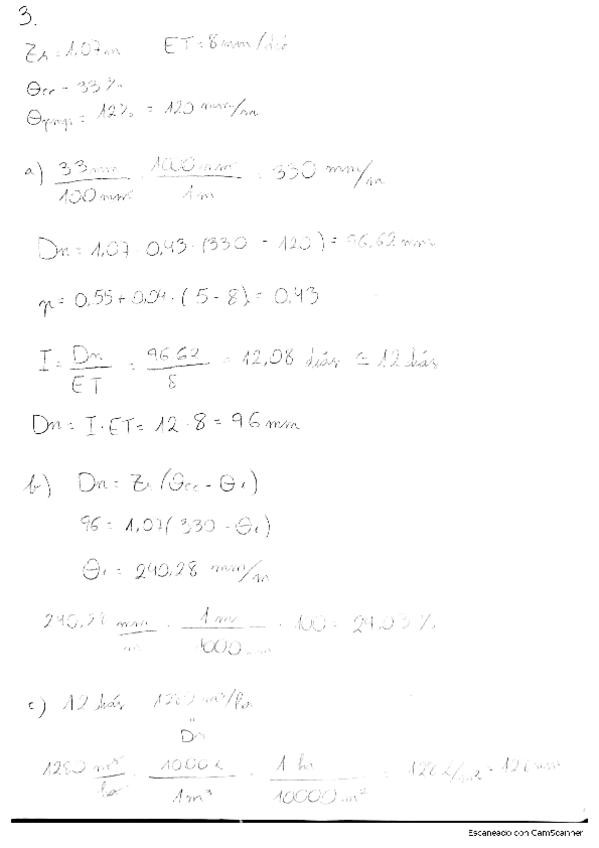 3.
Zr = 1,07m ET = 8 mm/día
θcc = 33%
θpmp = 12% = 120 mm/m
a) 33 mm / 100 mm · 1000 mm / 1 m = 330 mm/m
Dn = 1,07 · 0,43 · (330 - 120) = 96,62 mm
p = 0,55 + 0,04 · (5 - 8) = 0,43
I = Dn / ET = 96,62 / 8 = 12,08 días ≅ 12 días
Dn = I · ET = 12 · 8 = 96 mm
b) Dn = Zr (θcc - θr)
96 = 1,07 (330 - θr)
θr = 240,28 mm/m
240,28 mm / m · 1 m / 1000 mm · 100 = 24,03 %
c) 12 días 1280 m³/ha
"
Dn
1280 m³ / ha · 1000 L / 1 m³ · 1 ha / 10000 m² = 128 L/m² = 128 mm
Escaneado con CamScanner